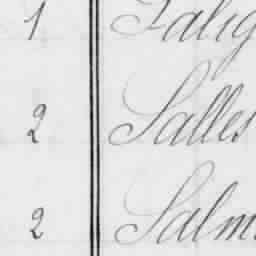 1 Salig
2 Salles
2 Salm